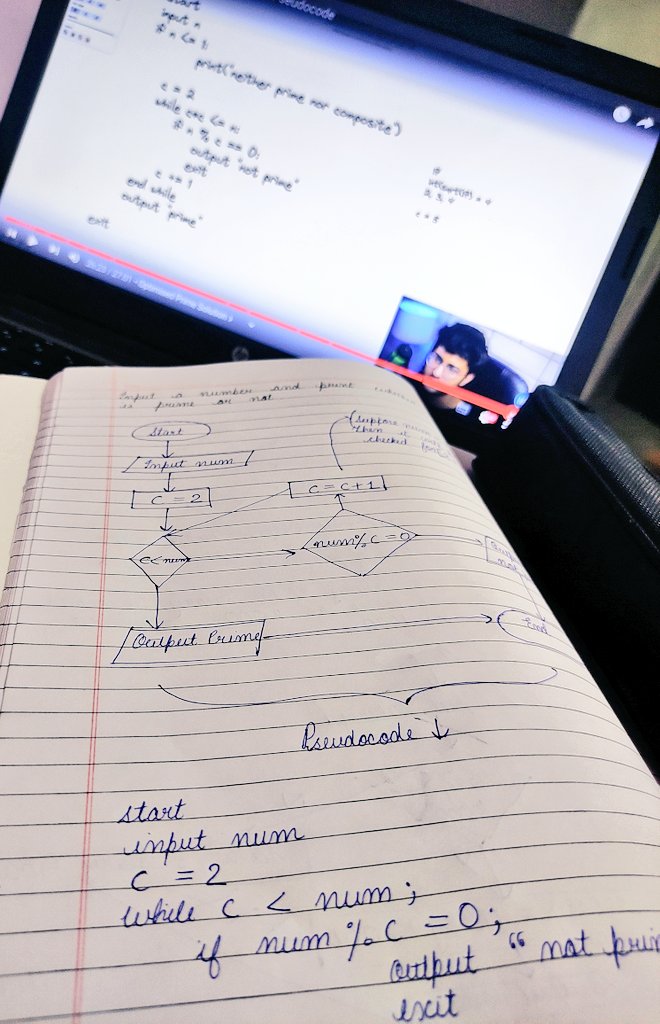 start
input n
if n <= 1:
print("neither prime nor composite")
c = 2
while c*c <= n:
if n % c == 0:
output "not prime"
exit
c += 1
end while
output "prime"
exit
Optimised Prime Solution
hp
Input a number and print
is prime or not
Start
Input num
C = 2
C = C+1
(suppose num
Then
checked
C<num
num%C=0
Output Prime
End
Pseudocode ↓
start
input num
C = 2
while C < num;
if num % C = 0;
output "not prim
exit